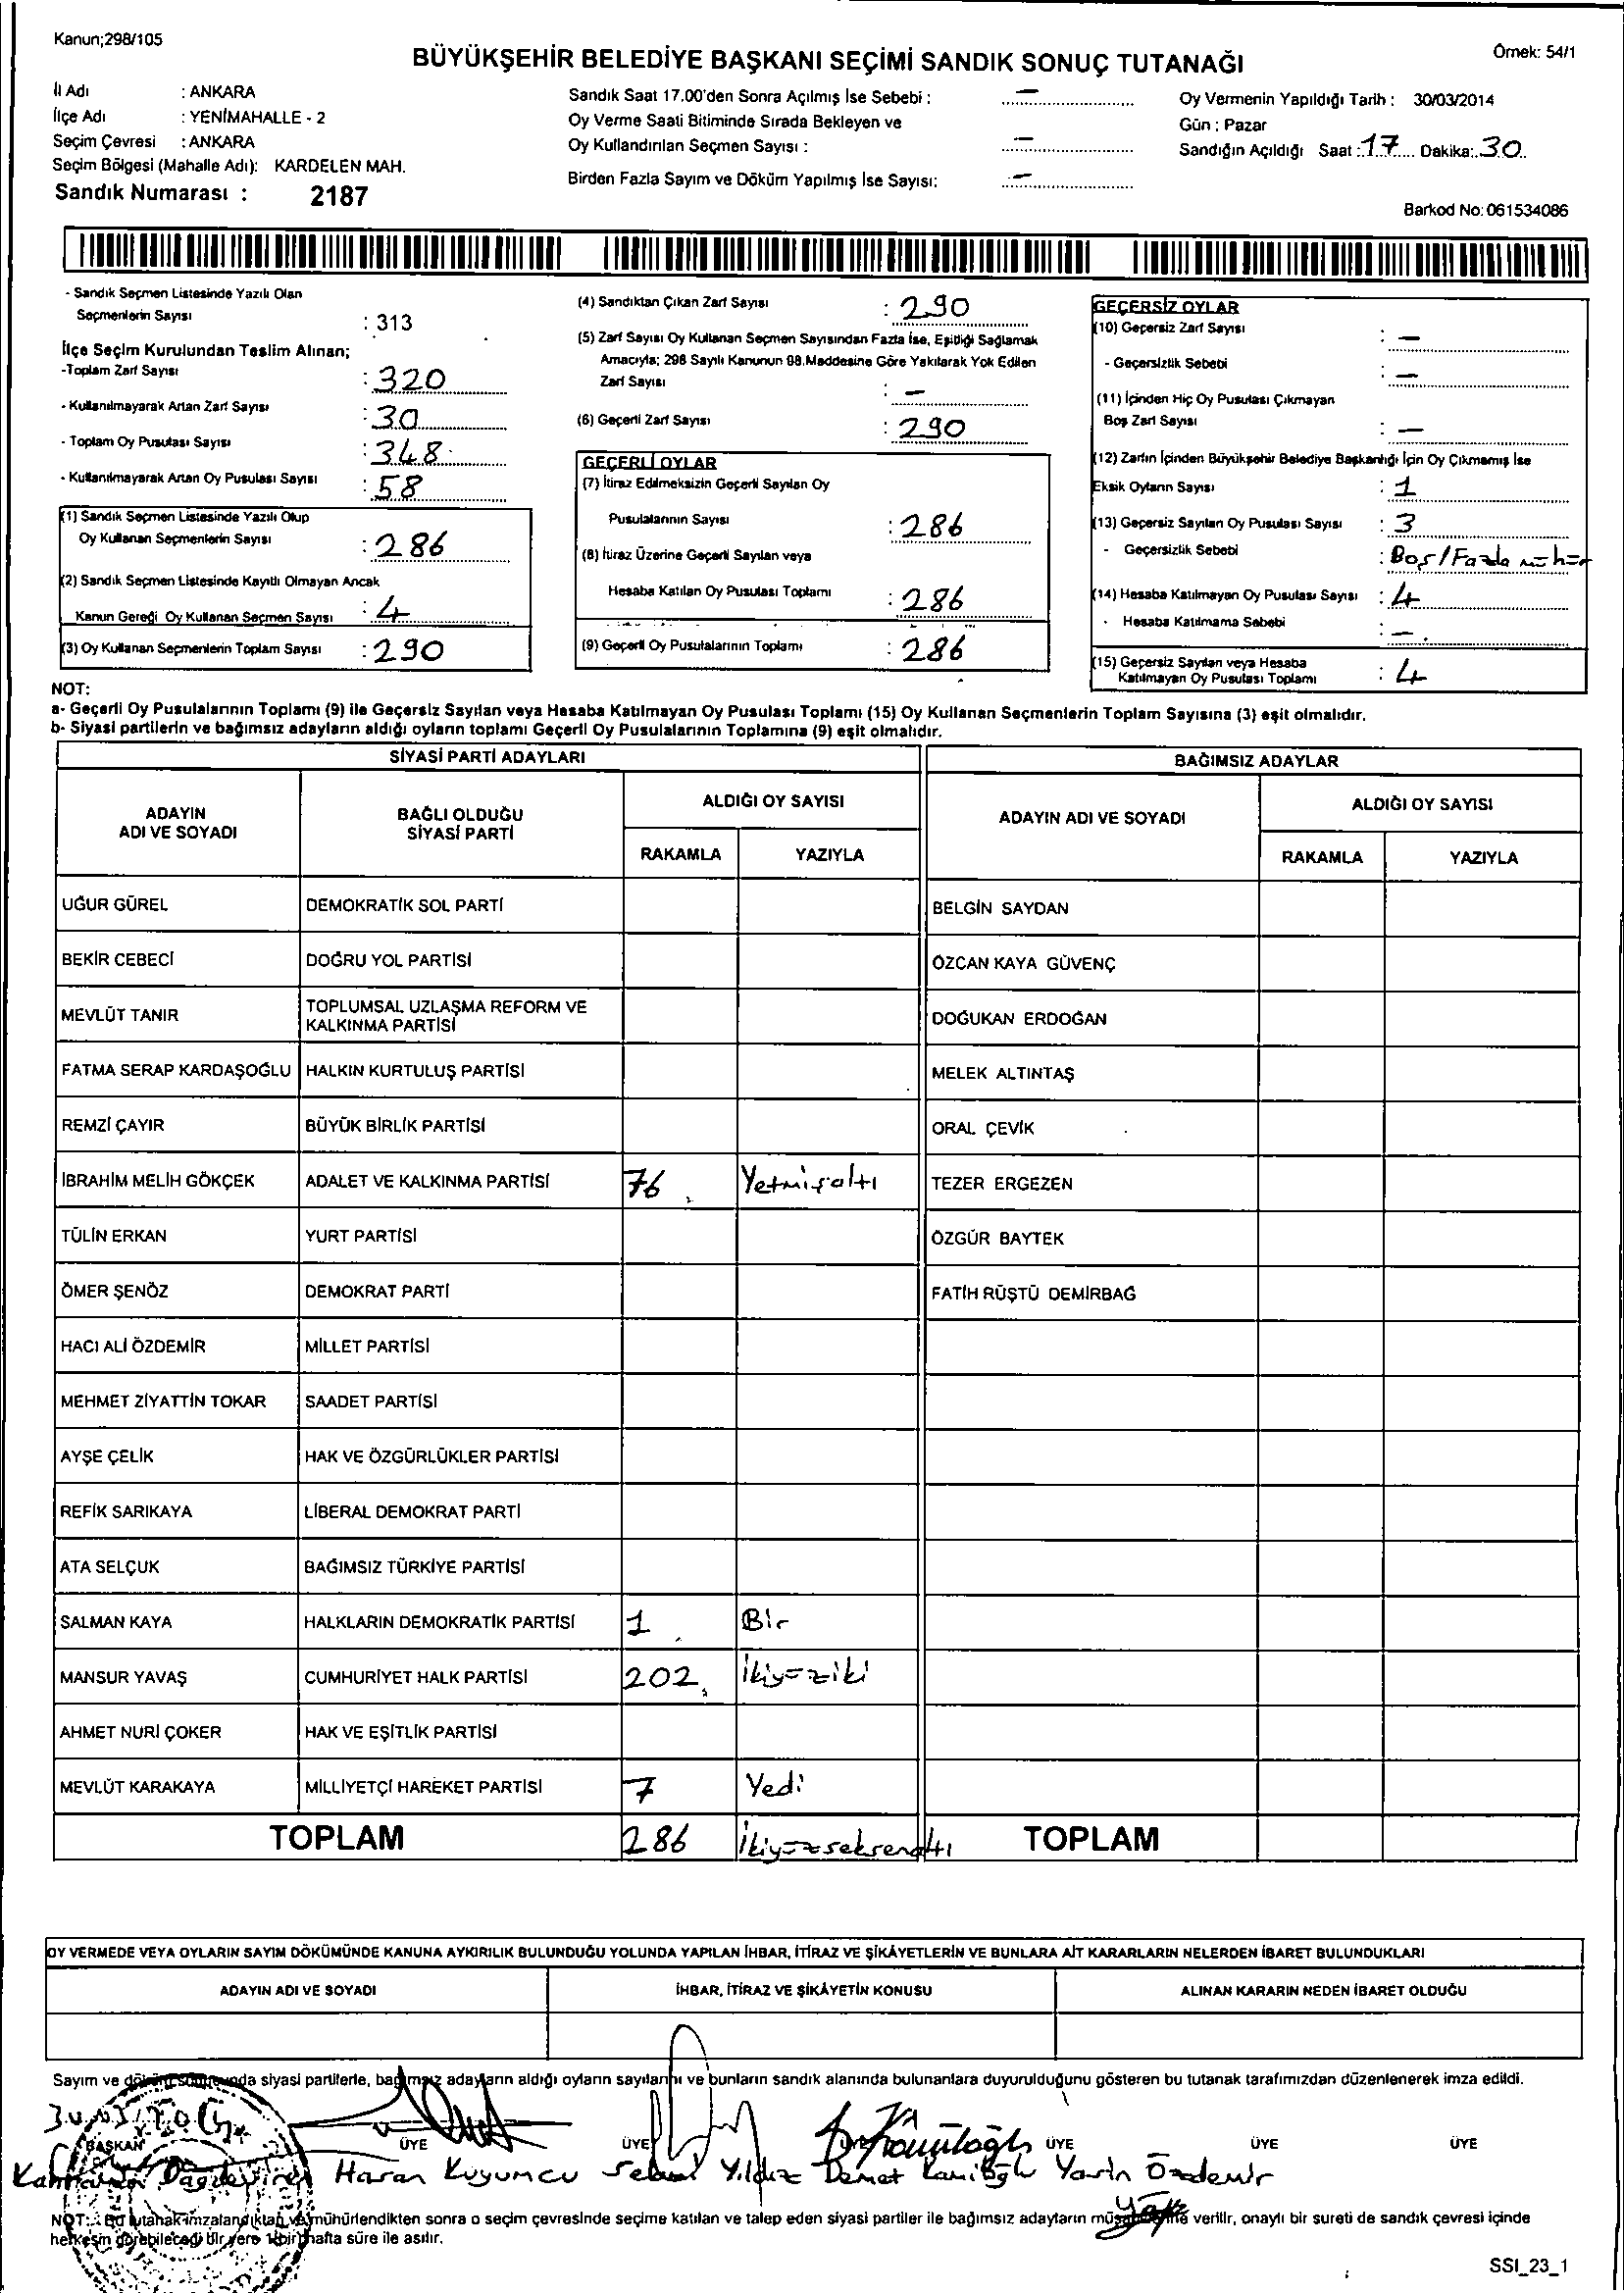 Kanun;298/105
BÜYÜKŞEHİR BELEDİYE BAŞKANI SEÇİMİ SANDIK SONUÇ TUTANAĞI
Örnek: 54/1
İl Adı : ANKARA
İlçe Adı : YENİMAHALLE - 2
Seçim Çevresi : ANKARA
Seçim Bölgesi (Mahalle Adı): KARDELEN MAH.
Sandık Numarası : 2187
Sandık Saat 17.00'den Sonra Açılmış İse Sebebi : —
Oy Verme Saati Bitiminde Sırada Bekleyen ve
Oy Kullandırılan Seçmen Sayısı : —
Birden Fazla Sayım ve Döküm Yapılmış İse Sayısı: —
Oy Vermenin Yapıldığı Tarih : 30/03/2014
Gün : Pazar
Sandığın Açıldığı Saat : 17 Dakika: 30
Barkod No: 061534086
- Sandık Seçmen Listesinde Yazılı Olan
Seçmenlerin Sayısı : 313
İlçe Seçim Kurulundan Teslim Alınan;
-Toplam Zarf Sayısı : 320
- Kullanılmayarak Artan Zarf Sayısı : 30
- Toplam Oy Pusulası Sayısı : 348
- Kullanılmayarak Artan Oy Pusulası Sayısı : 58
(1) Sandık Seçmen Listesinde Yazılı Olup
Oy Kullanan Seçmenlerin Sayısı : 286
(2) Sandık Seçmen Listesinde Kayıtlı Olmayan Ancak
Kanun Gereği Oy Kullanan Seçmen Sayısı : 4
(3) Oy Kullanan Seçmenlerin Toplam Sayısı : 290
(4) Sandıktan Çıkan Zarf Sayısı : 290
(5) Zarf Sayısı Oy Kullanan Seçmen Sayısından Fazla İse, Eşitliği Sağlamak
Amacıyla; 298 Sayılı Kanunun 98.Maddesine Göre Yakılarak Yok Edilen
Zarf Sayısı : —
(6) Geçerli Zarf Sayısı : 290
GEÇERLİ OYLAR
(7) İtiraz Edilmeksizin Geçerli Sayılan Oy
Pusulalarının Sayısı : 286
(8) İtiraz Üzerine Geçerli Sayılan veya
Hesaba Katılan Oy Pusulası Toplamı : 286
(9) Geçerli Oy Pusulalarının Toplamı : 286
GEÇERSİZ OYLAR
(10) Geçersiz Zarf Sayısı : —
- Geçersizlik Sebebi : —
(11) İçinden Hiç Oy Pusulası Çıkmayan
Boş Zarf Sayısı : —
(12) Zarfın İçinden Büyükşehir Belediye Başkanlığı İçin Oy Çıkmamış İse
Eksik Oyların Sayısı : 1
(13) Geçersiz Sayılan Oy Pusulası Sayısı : 3
- Geçersizlik Sebebi : Boş/Fazla mühür
(14) Hesaba Katılmayan Oy Pusulası Sayısı : 4
- Hesaba Katılmama Sebebi : —
(15) Geçersiz Sayılan veya Hesaba
Katılmayan Oy Pusulası Toplamı : 4
NOT:
a- Geçerli Oy Pusulalarının Toplamı (9) ile Geçersiz Sayılan veya Hesaba Katılmayan Oy Pusulası Toplamı (15) Oy Kullanan Seçmenlerin Toplam Sayısına (3) eşit olmalıdır.
b- Siyasi partilerin ve bağımsız adayların aldığı oyların toplamı Geçerli Oy Pusulalarının Toplamına (9) eşit olmalıdır.
SİYASİ PARTİ ADAYLARI
ADAYIN ADI VE SOYADI
BAĞLI OLDUĞU SİYASİ PARTİ
ALDIĞI OY SAYISI
RAKAMLA YAZIYLA
UĞUR GÜREL DEMOKRATİK SOL PARTİ
BEKİR CEBECİ DOĞRU YOL PARTİSİ
MEVLÜT TANIR TOPLUMSAL UZLAŞMA REFORM VE KALKINMA PARTİSİ
FATMA SERAP KARDAŞOĞLU HALKIN KURTULUŞ PARTİSİ
REMZİ ÇAYIR BÜYÜK BİRLİK PARTİSİ
İBRAHİM MELİH GÖKÇEK ADALET VE KALKINMA PARTİSİ 76 Yetmişaltı
TÜLİN ERKAN YURT PARTİSİ
ÖMER ŞENÖZ DEMOKRAT PARTİ
HACI ALİ ÖZDEMİR MİLLET PARTİSİ
MEHMET ZİYATTİN TOKAR SAADET PARTİSİ
AYŞE ÇELİK HAK VE ÖZGÜRLÜKLER PARTİSİ
REFİK SARIKAYA LİBERAL DEMOKRAT PARTİ
ATA SELÇUK BAĞIMSIZ TÜRKİYE PARTİSİ
SALMAN KAYA HALKLARIN DEMOKRATİK PARTİSİ 1 Bir
MANSUR YAVAŞ CUMHURİYET HALK PARTİSİ 202 İkiyüziki
AHMET NURİ ÇOKER HAK VE EŞİTLİK PARTİSİ
MEVLÜT KARAKAYA MİLLİYETÇİ HAREKET PARTİSİ 7 Yedi
TOPLAM 286 İkiyüzseksenaltı
BAĞIMSIZ ADAYLAR
ADAYIN ADI VE SOYADI
ALDIĞI OY SAYISI
RAKAMLA YAZIYLA
BELGİN SAYDAN
ÖZCAN KAYA GÜVENÇ
DOĞUKAN ERDOĞAN
MELEK ALTINTAŞ
ORAL ÇEVİK
TEZER ERGEZEN
ÖZGÜR BAYTEK
FATİH RÜŞTÜ DEMİRBAĞ
TOPLAM
OY VERMEDE VEYA OYLARIN SAYIM DÖKÜMÜNDE KANUNA AYKIRILIK BULUNDUĞU YOLUNDA YAPILAN İHBAR, İTİRAZ VE ŞİKÂYETLERİN VE BUNLARA AİT KARARLARIN NELERDEN İBARET BULUNDUKLARI
ADAYIN ADI VE SOYADI İHBAR, İTİRAZ VE ŞİKÂYETİN KONUSU ALINAN KARARIN NEDEN İBARET OLDUĞU
Sayım ve döküm sonucunda siyasi partilerle, bağımsız adayların aldığı oyların sayılarını ve bunların sandık alanında bulunanlara duyurulduğunu gösteren bu tutanak tarafımızdan düzenlenerek imza edildi.
BAŞKAN ÜYE ÜYE ÜYE ÜYE ÜYE ÜYE
Hasan Kuyumcu Selami Yıldız Demet Yasin Özdemir
NOT: Bu tutanak imzalandıktan ve mühürlendikten sonra o seçim çevresinde seçime katılan ve talep eden siyasi partiler ile bağımsız adayların müşahitlerine verilir, onaylı bir sureti de sandık çevresi içinde
herkesin görebileceği bir yere 1 bir hafta süre ile asılır.
SSI_23_1